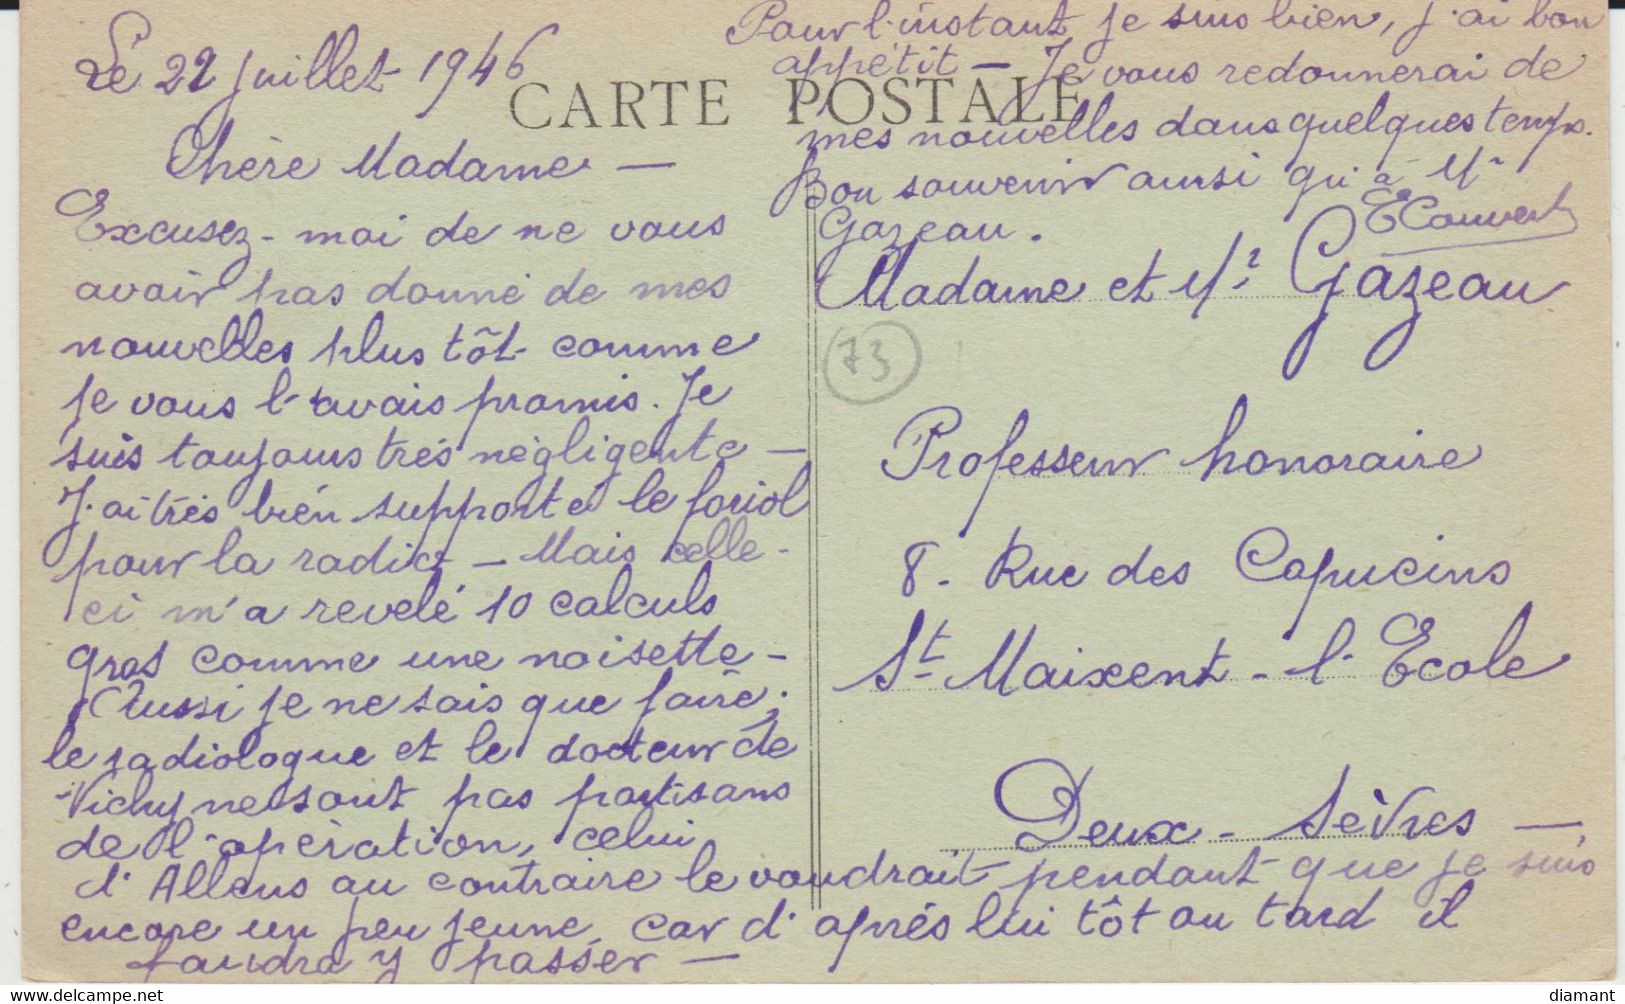 Le 22 juillet 1946
CARTE POSTALE
Chère Madame —
Excusez-moi de ne vous
avoir pas donné de mes
nouvelles plus tôt comme
je vous l'avais promis. Je
suis toujours très négligente —
J'ai très bien supporté le foriol
pour la radio — Mais celle-
ci m'a revelé 10 calculs
gros comme une noisette —
Aussi je ne sais que faire;
le radiologue et le docteur de
Vichy ne sont pas partisans
de l'opération, celui
d'Allens au contraire le voudrait pendant que je suis
encore un peu jeune, car d'après lui tôt ou tard il
faudra y passer —
Pour l'instant je suis bien, j'ai bon
appétit — Je vous redonnerai de
mes nouvelles dans quelques temps.
Bon souvenir aussi qu'à Mr
Gazeau.
E Couvert
Madame et Mr Gazeau
73
Professeur honoraire
8 - Rue des Capucins
St-Maixent-l'Ecole
Deux-Sèvres —
www.delcampe.net
diamant